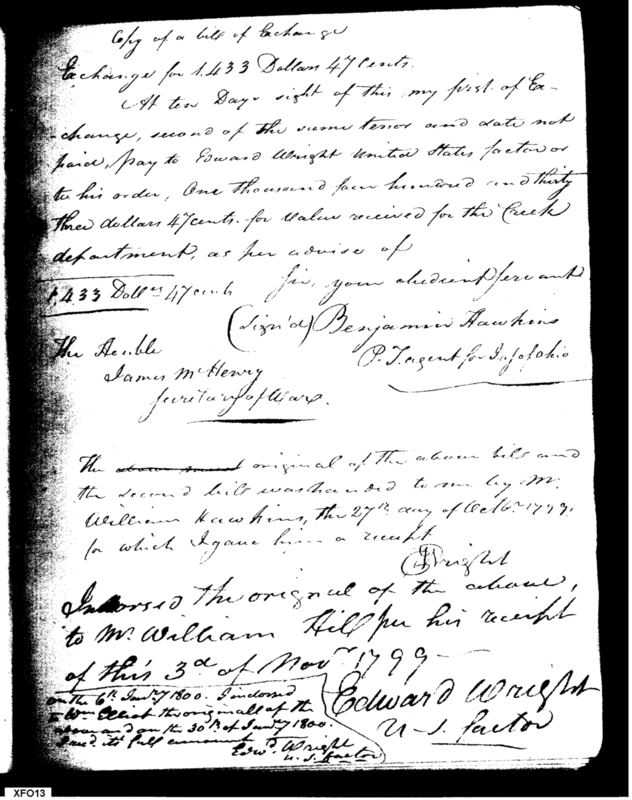 Copy of a bill of Exchange
Exchange for 1,433 Dollars 47 Cents.
At ten Days sight of this my first of Ex-
-change, second of the same tenor and date not
paid, pay to Edward Wright United States factor or
to his order, One thousand four hundred and thirty
three dollars 47 cents. for value received for the Creek
department, as per advise of
1,433 Dolls 47 cents Sir, your obedient servant
(Sign'd) Benjamin Hawkins
P. T. agent for I. of Ohio
The Honble
James McHenry
Secretary of War.
The original of the above bill and
the second bill was handed to me by Mr.
William Hawkins, the 27th day of Octbr. 1799.
for which I gave him a receipt
Wright
Indorsed the original of the above,
to Mr. William Hill per his receipt
of this 3d of Novr 1799
Edward Wright
U-S. factor
on the 6th Jany 1800. I indorsed
to Wm Elliot the original of the
above and on the 30th of Jany 1800.
I recd. its full amount
Edwd. Wright
U. S. factor
XFO13